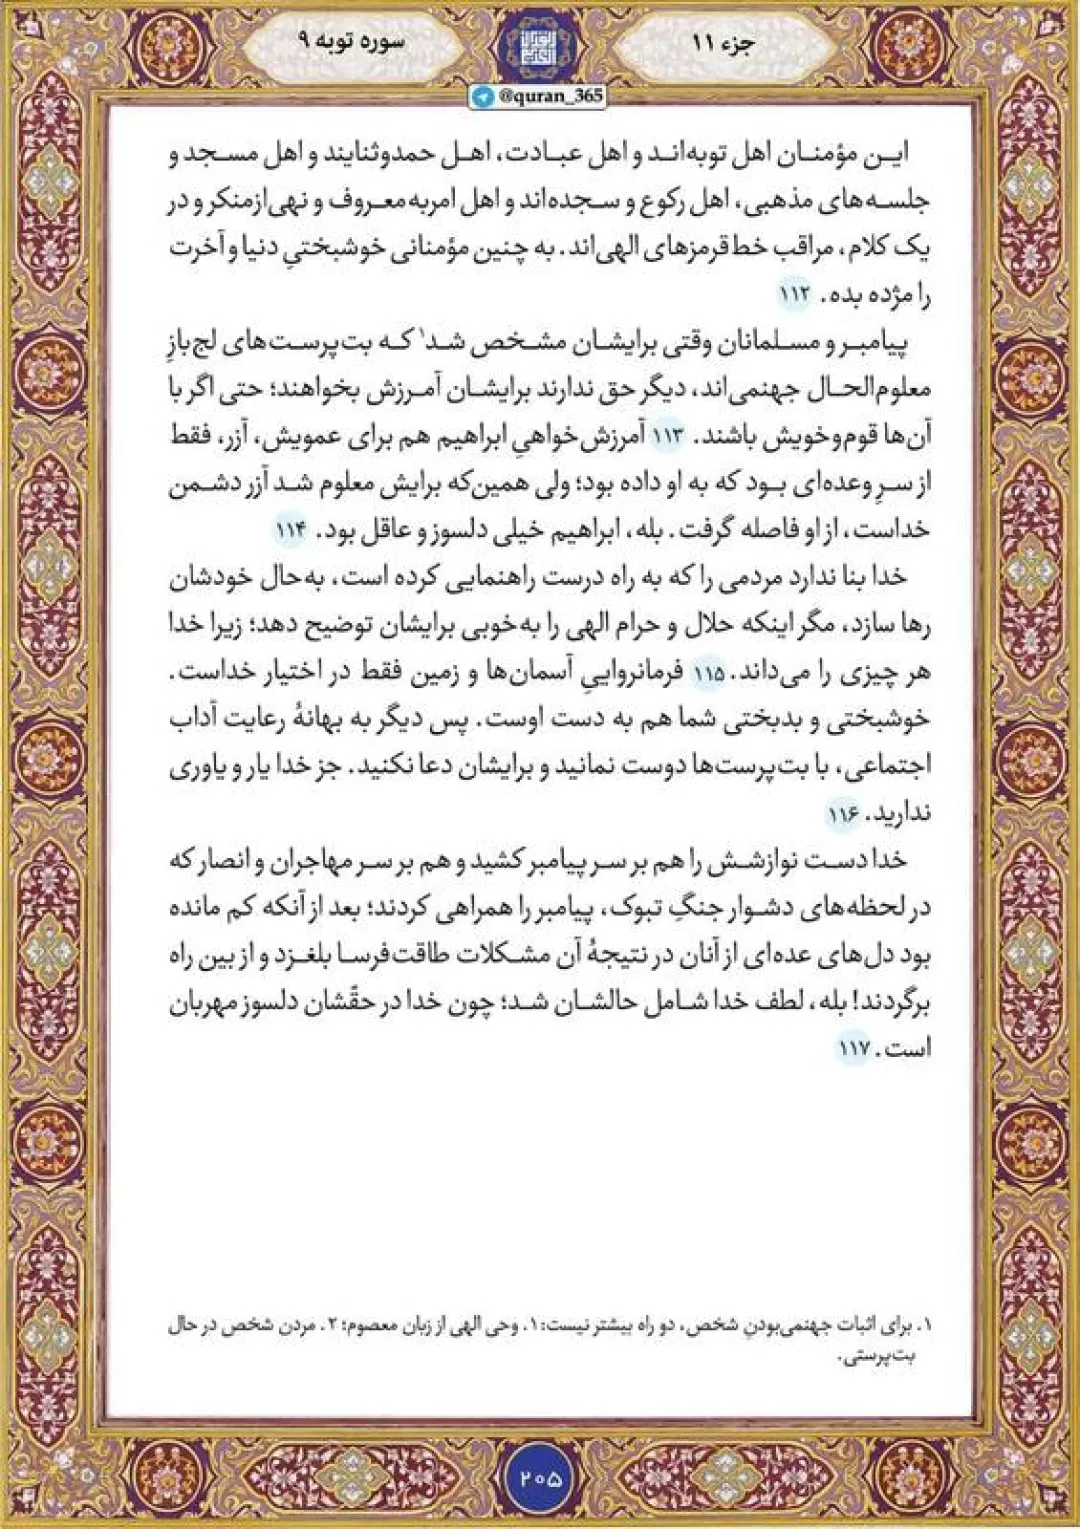 جزء ۱۱
سوره توبه ۹
@quran_365
این مؤمنان اهل توبه‌اند و اهل عبادت، اهل حمدوثنایند و اهل مسجد و
جلسه‌های مذهبی، اهل رکوع و سجده‌اند و اهل امربه‌معروف و نهی‌ازمنکر و در
یک کلام، مراقب خط‌قرمزهای الهی‌اند. به چنین مؤمنانی خوشبختیِ دنیا و آخرت
را مژده بده. ۱۱۲
پیامبر و مسلمانان وقتی برایشان مشخص شد۱ که بت‌پرست‌های لج‌بازِ
معلوم‌الحال جهنمی‌اند، دیگر حق ندارند برایشان آمرزش بخواهند؛ حتی اگر با
آن‌ها قوم‌وخویش باشند. ۱۱۳ آمرزش‌خواهیِ ابراهیم هم برای عمویش، آزر، فقط
از سرِ وعده‌ای بود که به او داده بود؛ ولی همین‌که برایش معلوم شد آزر دشمن
خداست، از او فاصله گرفت. بله، ابراهیم خیلی دلسوز و عاقل بود. ۱۱۴
خدا بنا ندارد مردمی را که به راه درست راهنمایی کرده است، به‌حال خودشان
رها سازد، مگر اینکه حلال و حرام الهی را به‌خوبی برایشان توضیح دهد؛ زیرا خدا
هر چیزی را می‌داند. ۱۱۵ فرمانرواییِ آسمان‌ها و زمین فقط در اختیار خداست.
خوشبختی و بدبختی شما هم به دست اوست. پس دیگر به بهانهٔ رعایت آداب
اجتماعی، با بت‌پرست‌ها دوست نمانید و برایشان دعا نکنید. جز خدا یار و یاوری
ندارید. ۱۱۶
خدا دست نوازشش را هم بر سر پیامبر کشید و هم بر سر مهاجران و انصار که
در لحظه‌های دشوار جنگِ تبوک، پیامبر را همراهی کردند؛ بعد از آنکه کم مانده
بود دل‌های عده‌ای از آنان در نتیجهٔ آن مشکلات طاقت‌فرسا بلغزد و از بین راه
برگردند! بله، لطف خدا شامل حالشان شد؛ چون خدا در حقّشان دلسوز مهربان
است. ۱۱۷
۱. برای اثبات جهنمی‌بودنِ شخص، دو راه بیشتر نیست: ۱. وحی الهی از زبان معصوم؛ ۲. مردن شخص در حال
بت‌پرستی.
۲۰۵